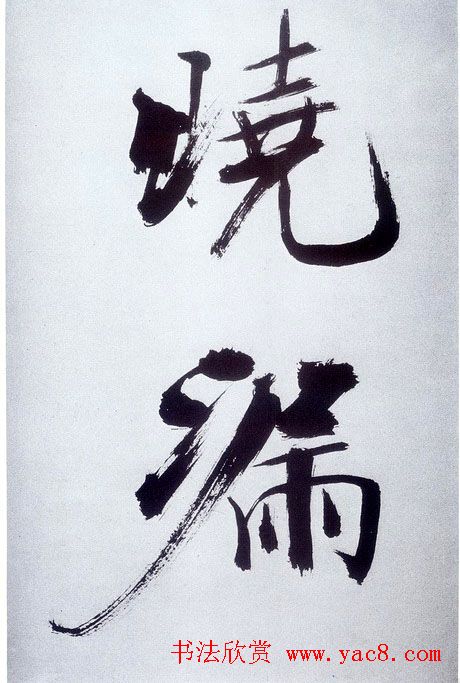 曉
端
书法欣赏 www.yac8.com